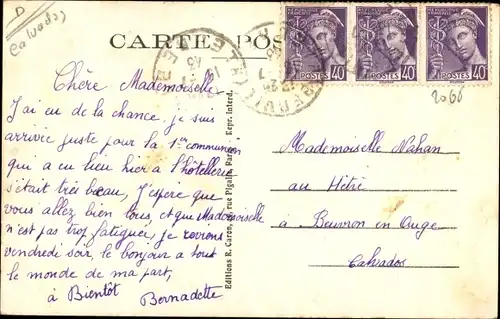 D
Calvados
CARTE POS
POSTES 40
POSTES 40
POSTES 40
2068
Chère Mademoiselle
J'ai eu de la chance, je suis
arrivée juste pour la 1ère communion
qui a eu lieu hier a l'hôtellerie
s'était très beau, J'espère que
vous allez bien tous, et que Mademoiselle
n'est pas trop fatiguée, je reviens
vendredi soir, le bonjour a tout
le monde de ma part,
à Bientôt Bernadette
Editions R. Caron, rue Pigalle, Paris. Repr. Interd.
Mademoiselle Nahan
au Hêtre
à Beuvron en Auge
Calvados